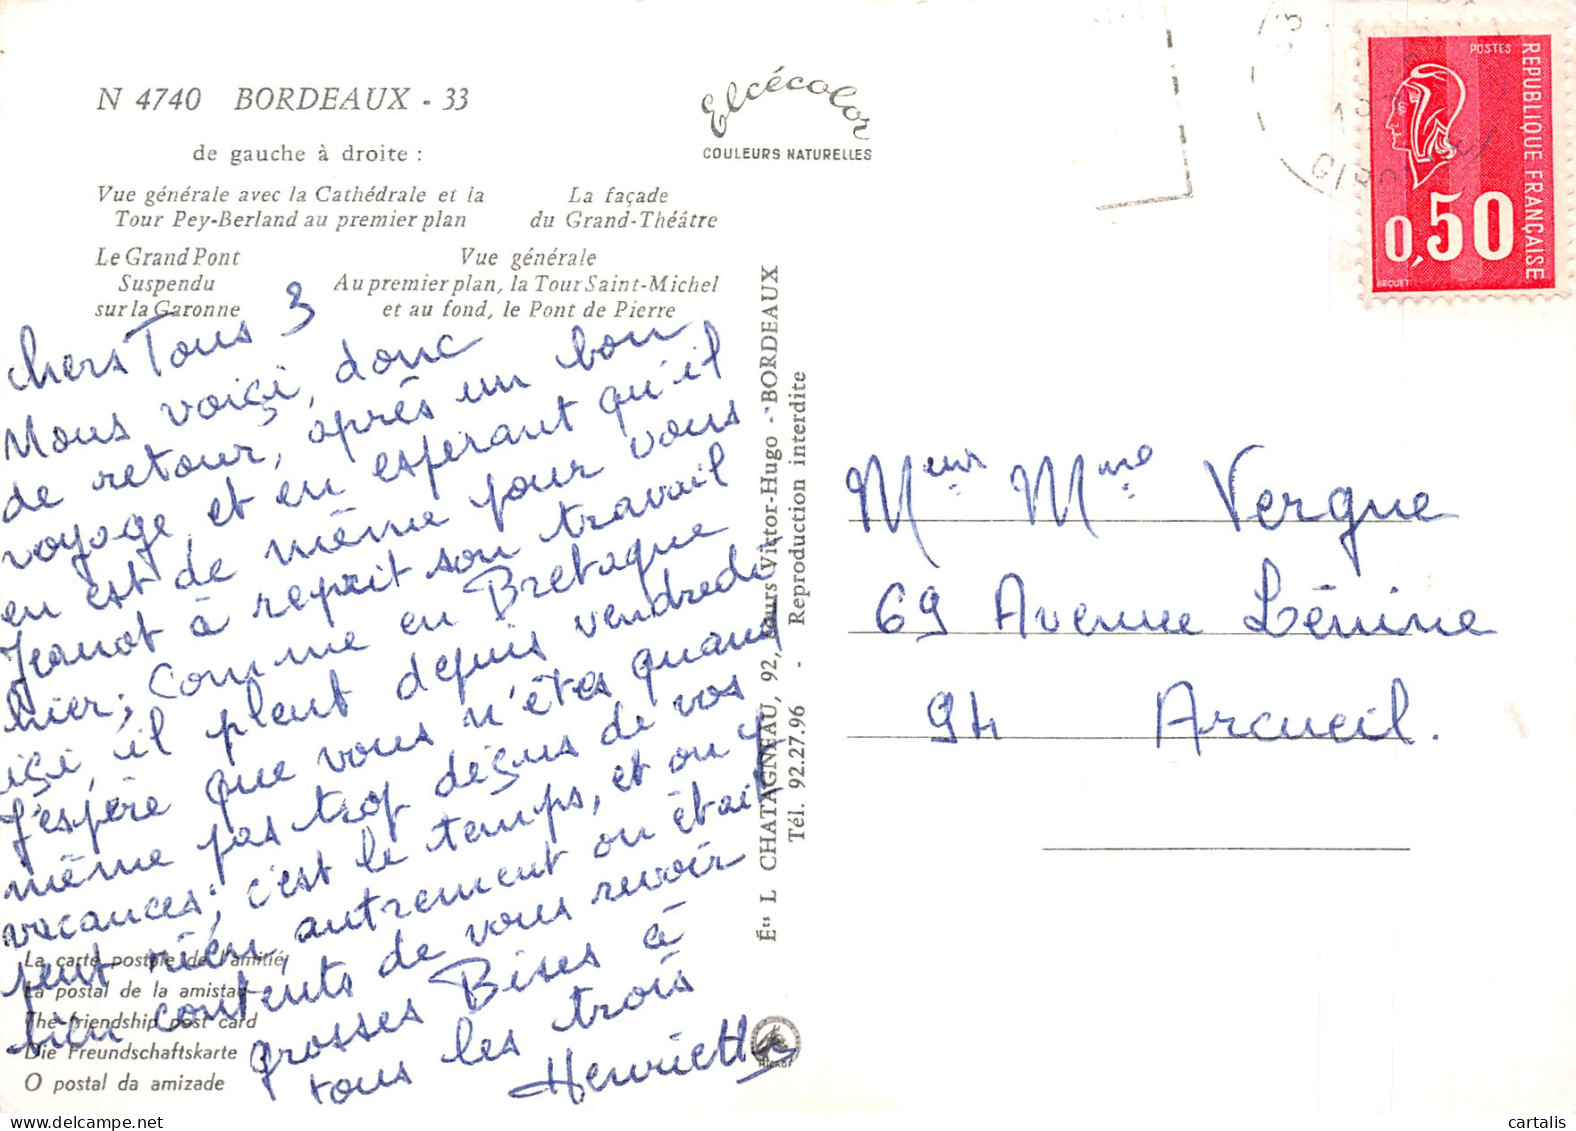 N 4740 BORDEAUX - 33
de gauche à droite :
Vue générale avec la Cathédrale et la
Tour Pey-Berland au premier plan
La façade
du Grand-Théâtre
Le Grand Pont
Suspendu
sur la Garonne
Vue générale
Au premier plan, la Tour Saint-Michel
et au fond, le Pont de Pierre
Elcécolor
COULEURS NATURELLES
chers Tous 3
Nous voiçi, donc
de retour, après un bon
voyage, et en esperant qu'il
en est de même pour vous
Jeanot à reprit son travail
hier; comme en Bretagne
içi, il pleut depuis vendredi
J'espère que vous n'êtes quand
même pas trop déçus de vos
vacances; c'est le temps, et on y
peut rien, autrement on était
bien contents de vous revoir
grosses Bises à
tous les trois
Henriette
La carte postale de l'amitié
La postal de la amistad
The friendship post card
Die Freundschaftskarte
O postal da amizade
Éts L CHATAGNEAU, 92, cours Victor-Hugo - BORDEAUX
Tél. 92.27.96 - Reproduction interdite
POSTES
REPUBLIQUE FRANÇAISE
0,50
BEQUET
Meur Mme Vergne
69 Avenue Lénine
94 Arcueil.
cartalis